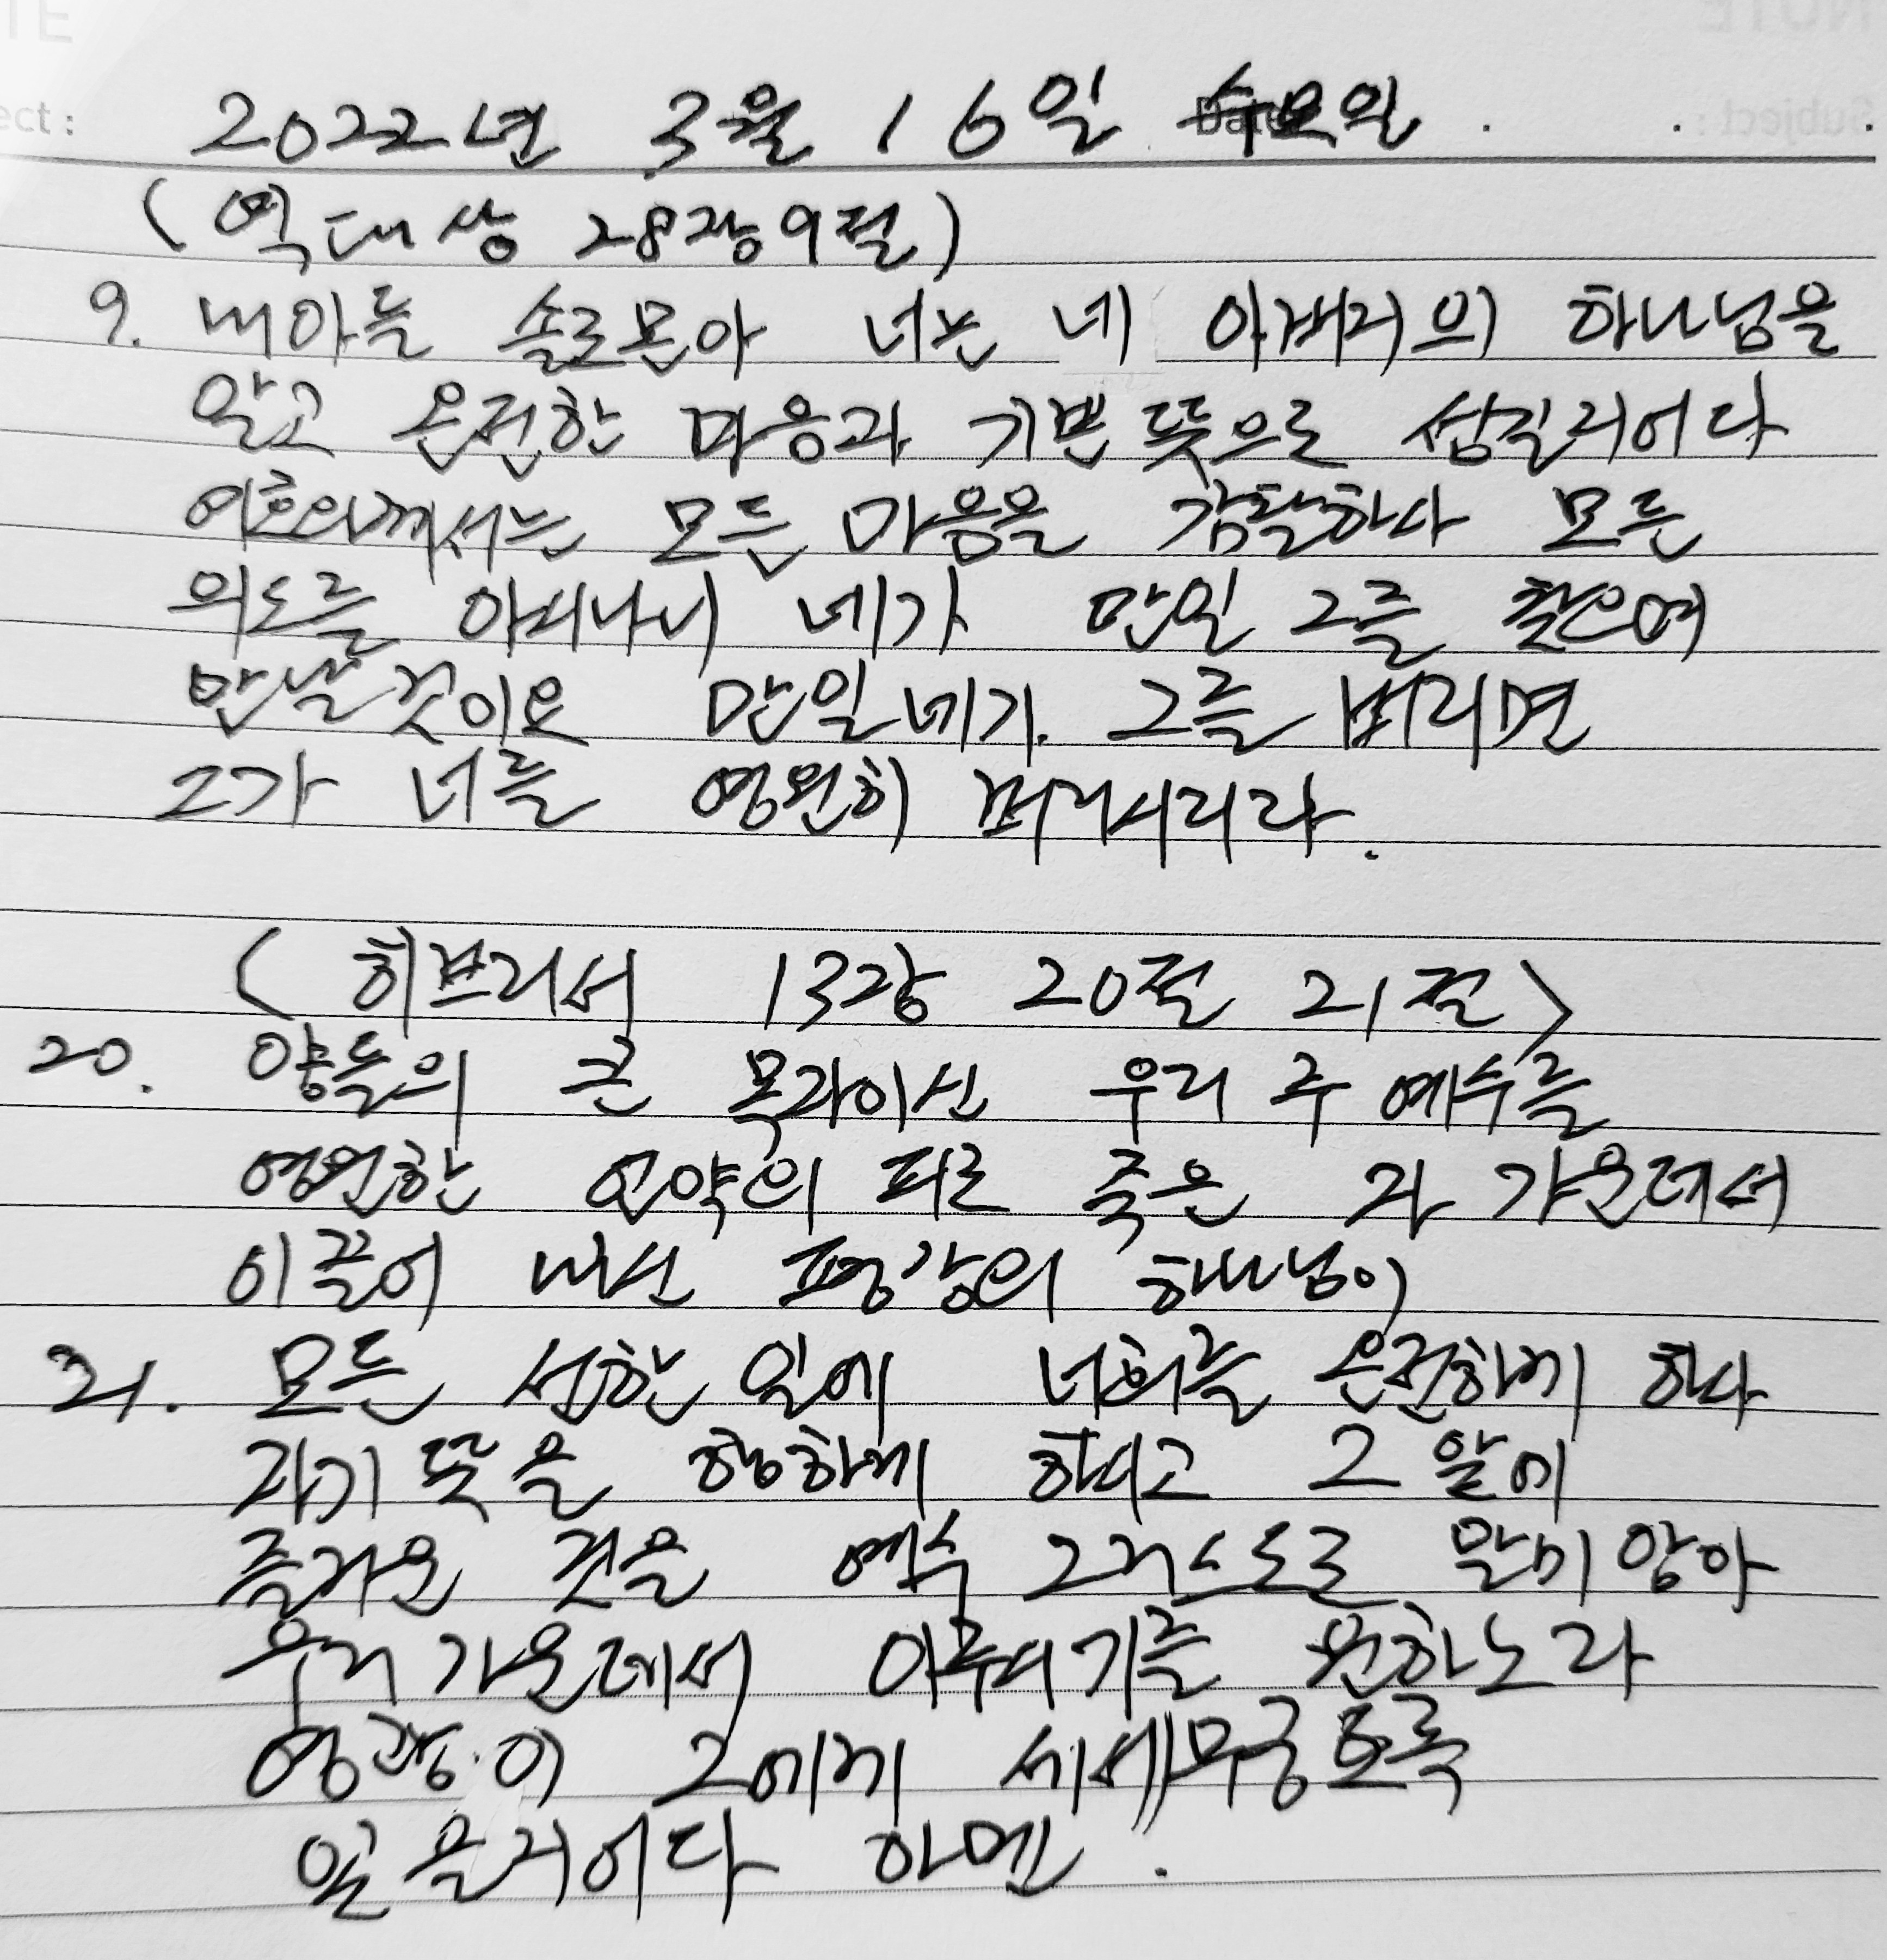 2022년 3월 16일 수요일
(역대상 28장 9절)
9. 내아들 솔로몬아 너는 네 아버지의 하나님을
알고 온전한 마음과 기쁜 뜻으로 섬길지어다
여호와께서는 모든 마음을 감찰하사 모든
의도를 아시나니 네가 만일 그를 찾으며
만날것이요 만일네가 그를 버리면
그가 너를 영원히 버리시리라.
(히브리서 13장 20절 21절)
20. 양들의 큰 목자이신 우리 주 예수를
영원한 언약의 피로 죽은 자 가운데서
이끌어 내신 평강의 하나님이
21. 모든 선한 일에 너희를 온전하게 하사
자기 뜻을 행하게 하시고 그 앞에
즐거운 것을 예수 그리스도로 말미암아
우리 가운데서 이루시기를 원하노라
영광이 그에게 세세무궁토록
있을지어다 아멘.